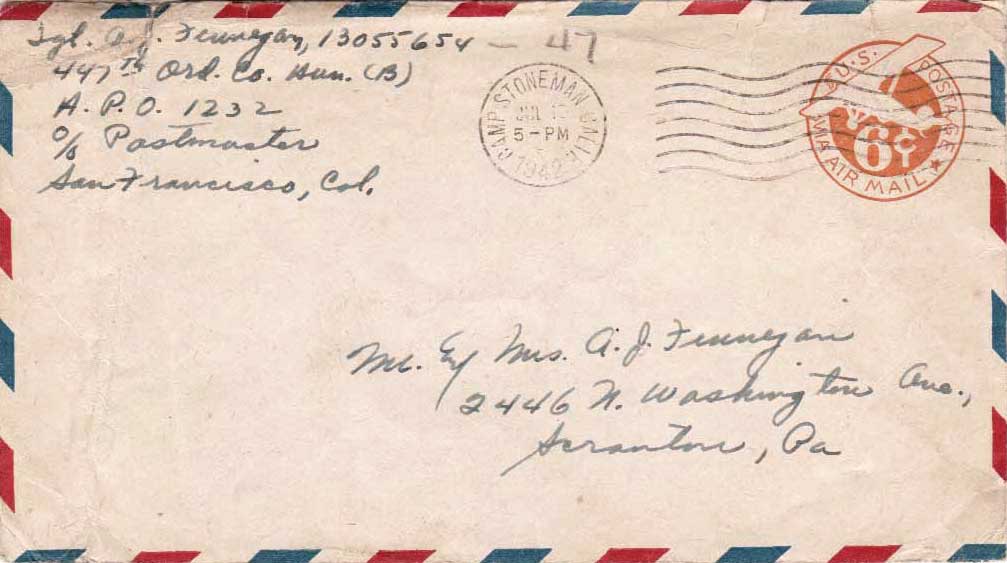 Sgt. A. J. Finnegan, 13055654 - 47
447th Ord. Co. Avn. (B)
A. P. O. 1232
c/o Postmaster
San Francisco, Cal.
CAMP STONEMAN CALIF.
JUL
5 - PM
1942
U.S. POSTAGE
6¢
VIA AIR MAIL
Mr. & Mrs. A. J. Finnegan
2446 N. Washington Ave.,
Scranton, Pa